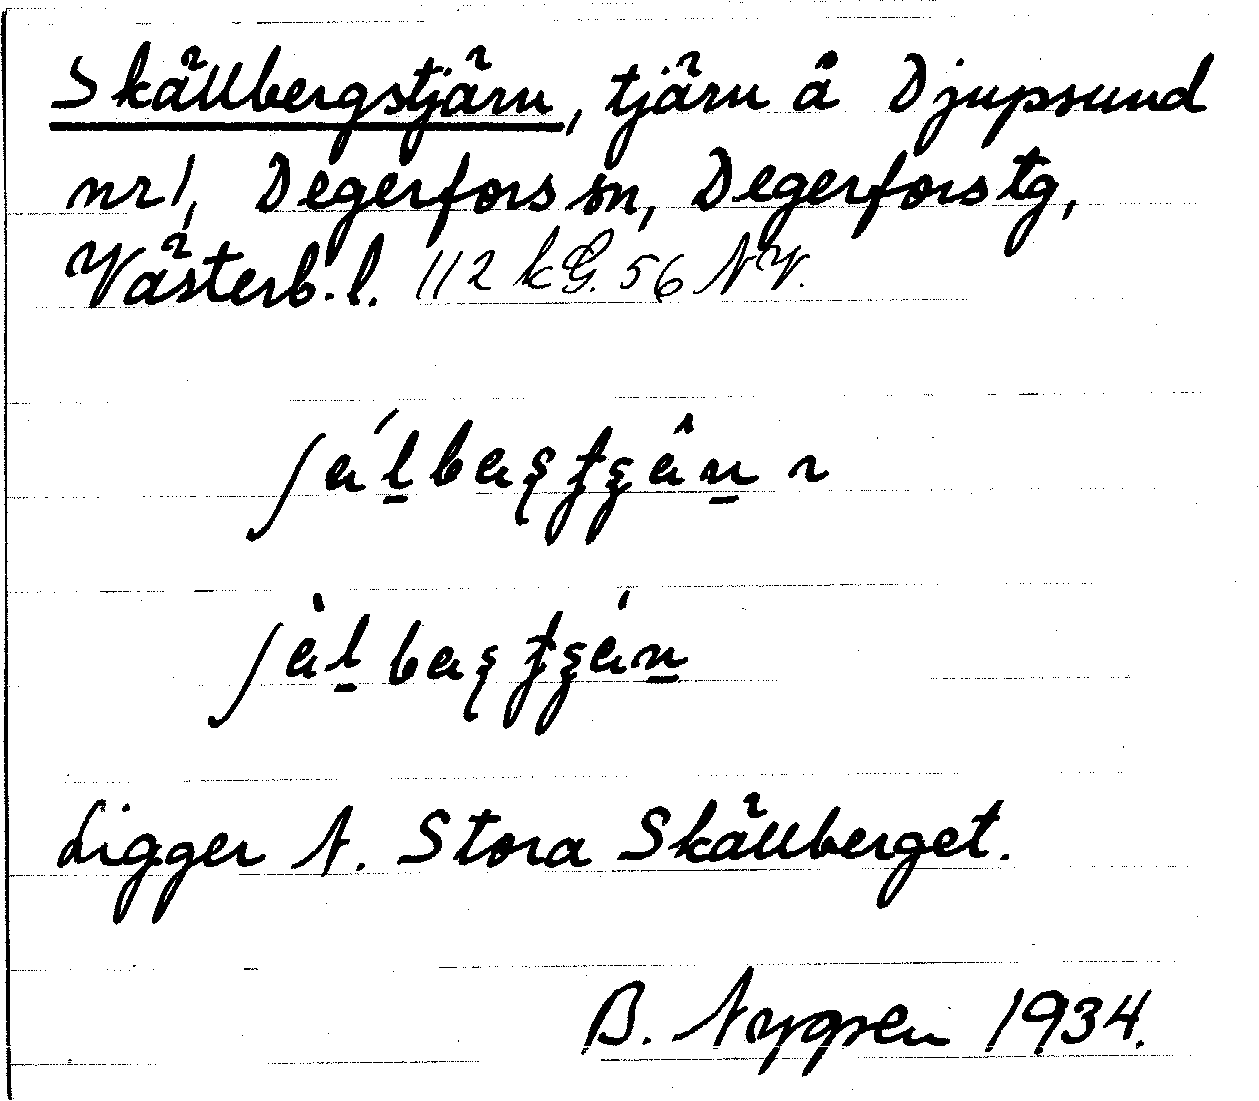 Skällbergstjärn, tjärn å Djupsund
nr 1, Degerfors sn, Degerfors tg,
Västerb. l. 112 kG. 56 NV.
Ligger N. Stora Skällberget.
B. Nygren 1934.